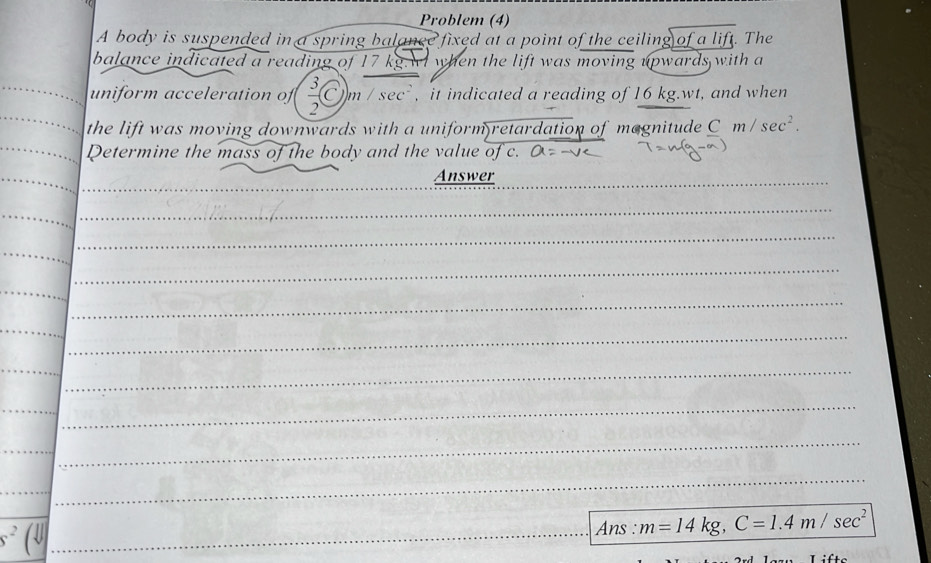 Problem (4)
A body is suspended in a spring balance fixed at a point of the ceiling of a lift. The
balance indicated a reading of 17 kg.wt when the lift was moving upwards with a
uniform acceleration of 3/2 C m / sec², it indicated a reading of 16 kg.wt, and when
the lift was moving downwards with a uniform retardation of magnitude C m / sec².
Determine the mass of the body and the value of c. a = -ve T = m(g-a)
Answer
Ans : m = 14 kg, C = 1.4 m / sec²
3rd law Lifts